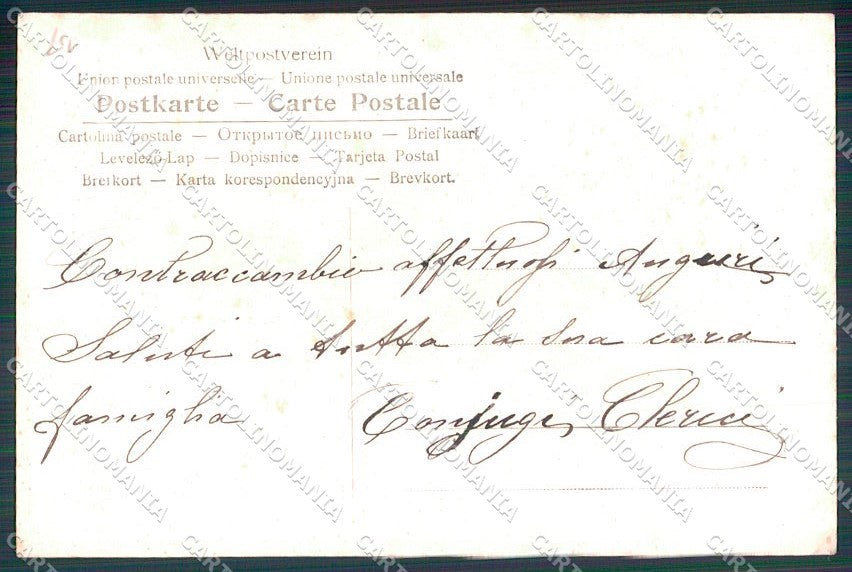 151
Weltpostverein
Union postale universelle — Unione postale universale
Postkarte — Carte Postale
Cartolina postale — Открытое письмо — Briefkaart
Levelező-Lap — Dopisnice — Tarjeta Postal
Brefkort — Karta korespondencyjna — Brevkort.
Contraccambio affettuosi Auguri,
Saluti a tutta la sua cara
famiglia Conjugi Clerici
CARTOLINOMANIA